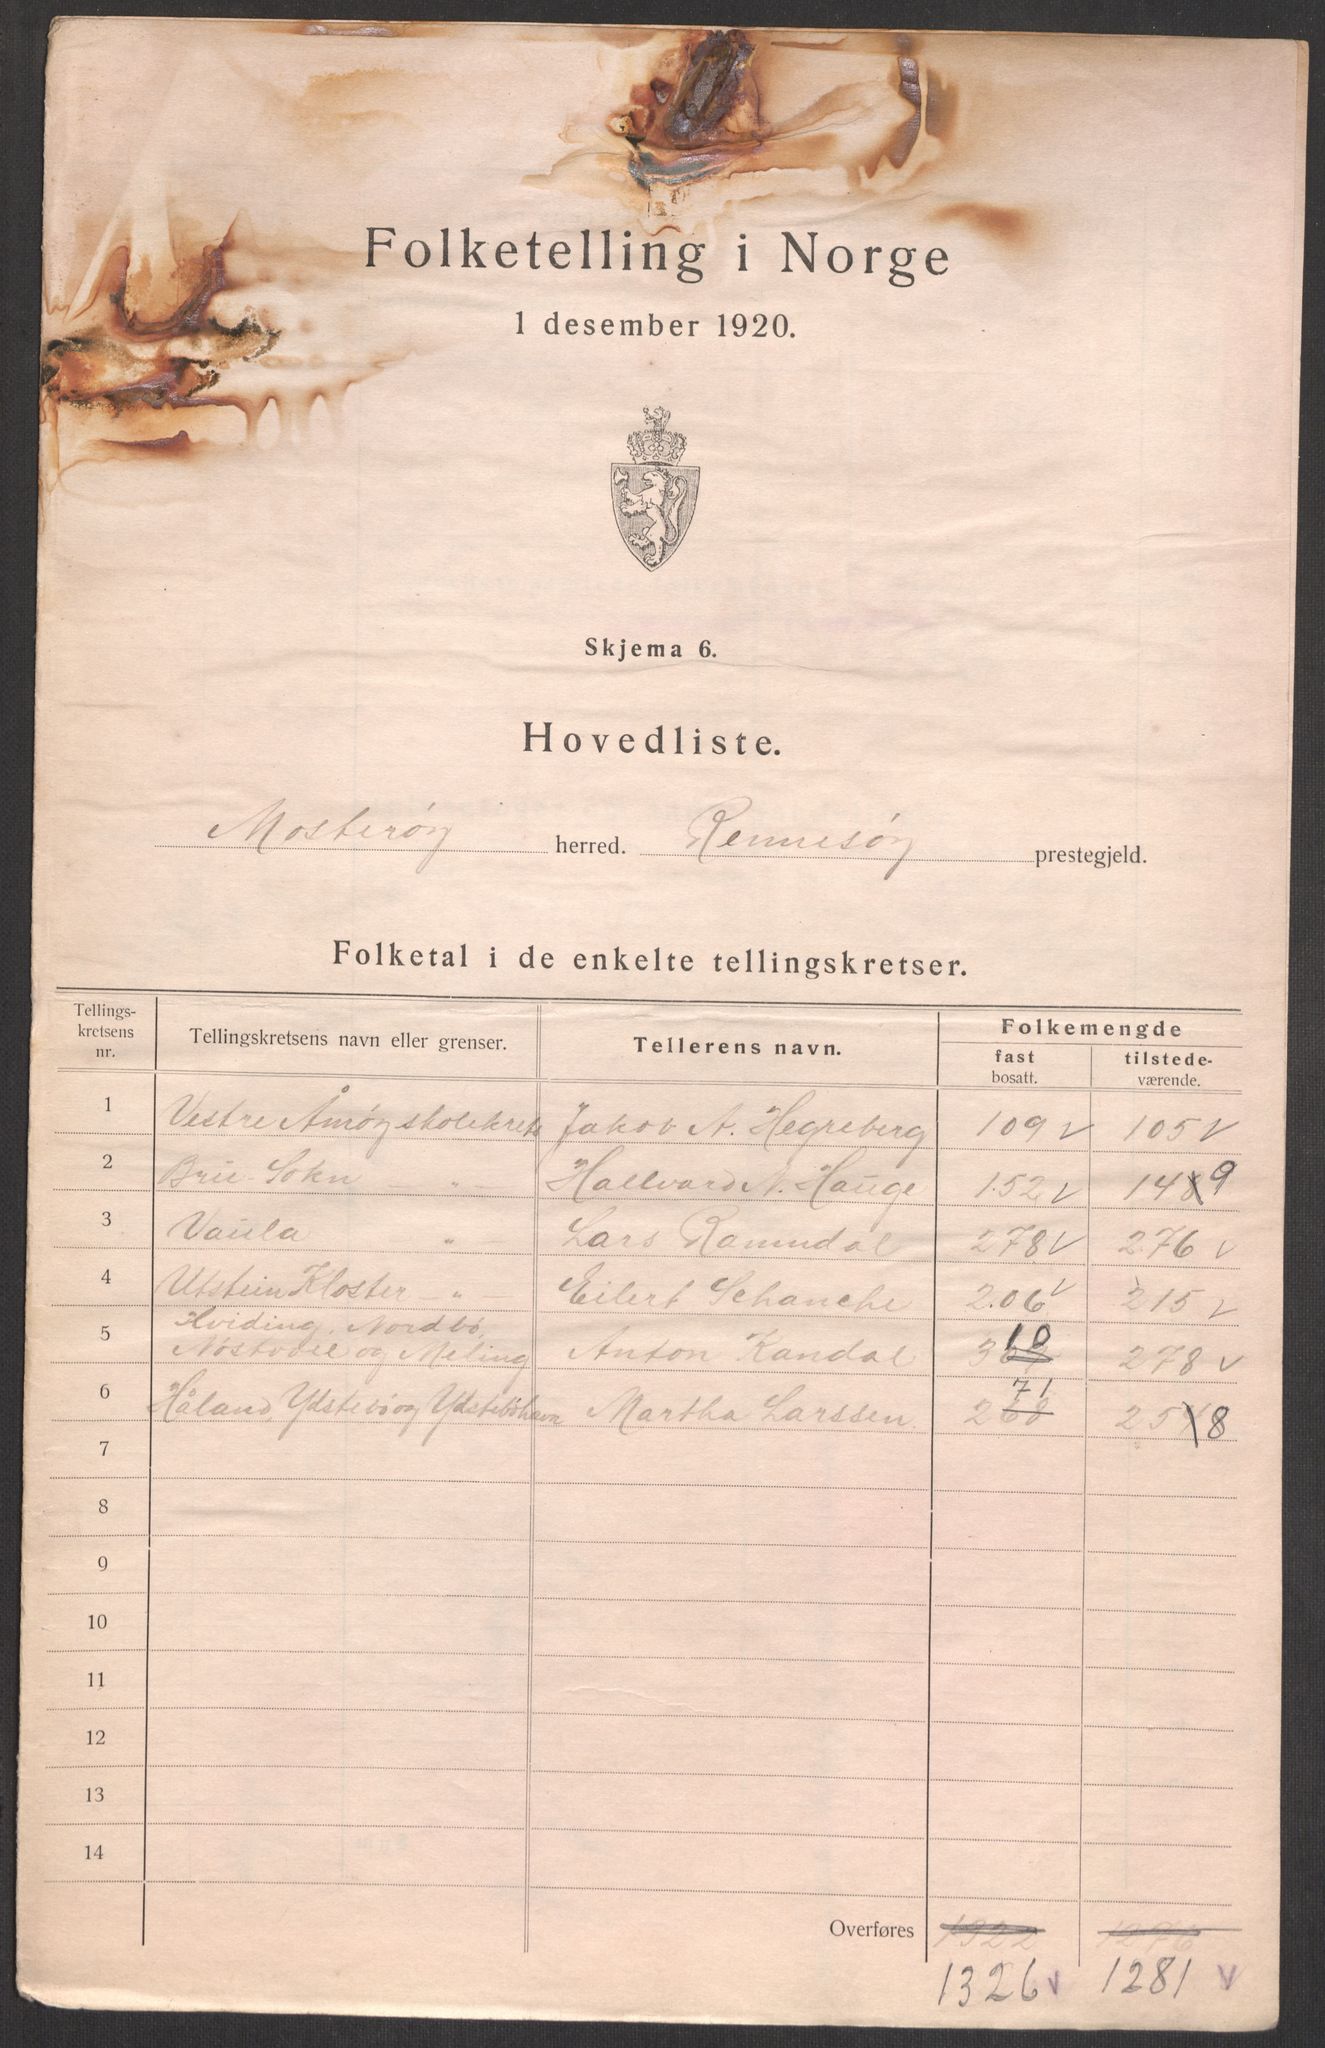 Folketelling i Norge
1 desember 1920.
Skjema 6.
Hovedliste.
Mosterøy herred. Rennesøy prestegjeld.
Folketal i de enkelte tellingskretser.
Tellings-
kretsens
nr.
Tellingskretsens navn eller grenser.
Tellerens navn.
Folkemengde
fast
bosatt.
tilstede-
værende.
1 Vestre Åmøy skolekrets Jakob A. Hegreberg 109 √ 105 √
2 Bru-Sokn — " — Hallvard N. Hauge 152 √ 148 9
3 Vaula — " — Lars Ramndal 278 √ 276 √
4 Utstein Kloster — " — Eilert Schanche 206 √ 215 √
5 Hviding, Nordbö, 10
Nöstvoll og Meling Anton Kandal 278 √
6 Håland, Ydstebö og Ydsteböhavn Martha Larssen 71
268 25 8
7
8
9
10
11
12
13
14
Overføres 1322 1276
1326 √ 1281 √